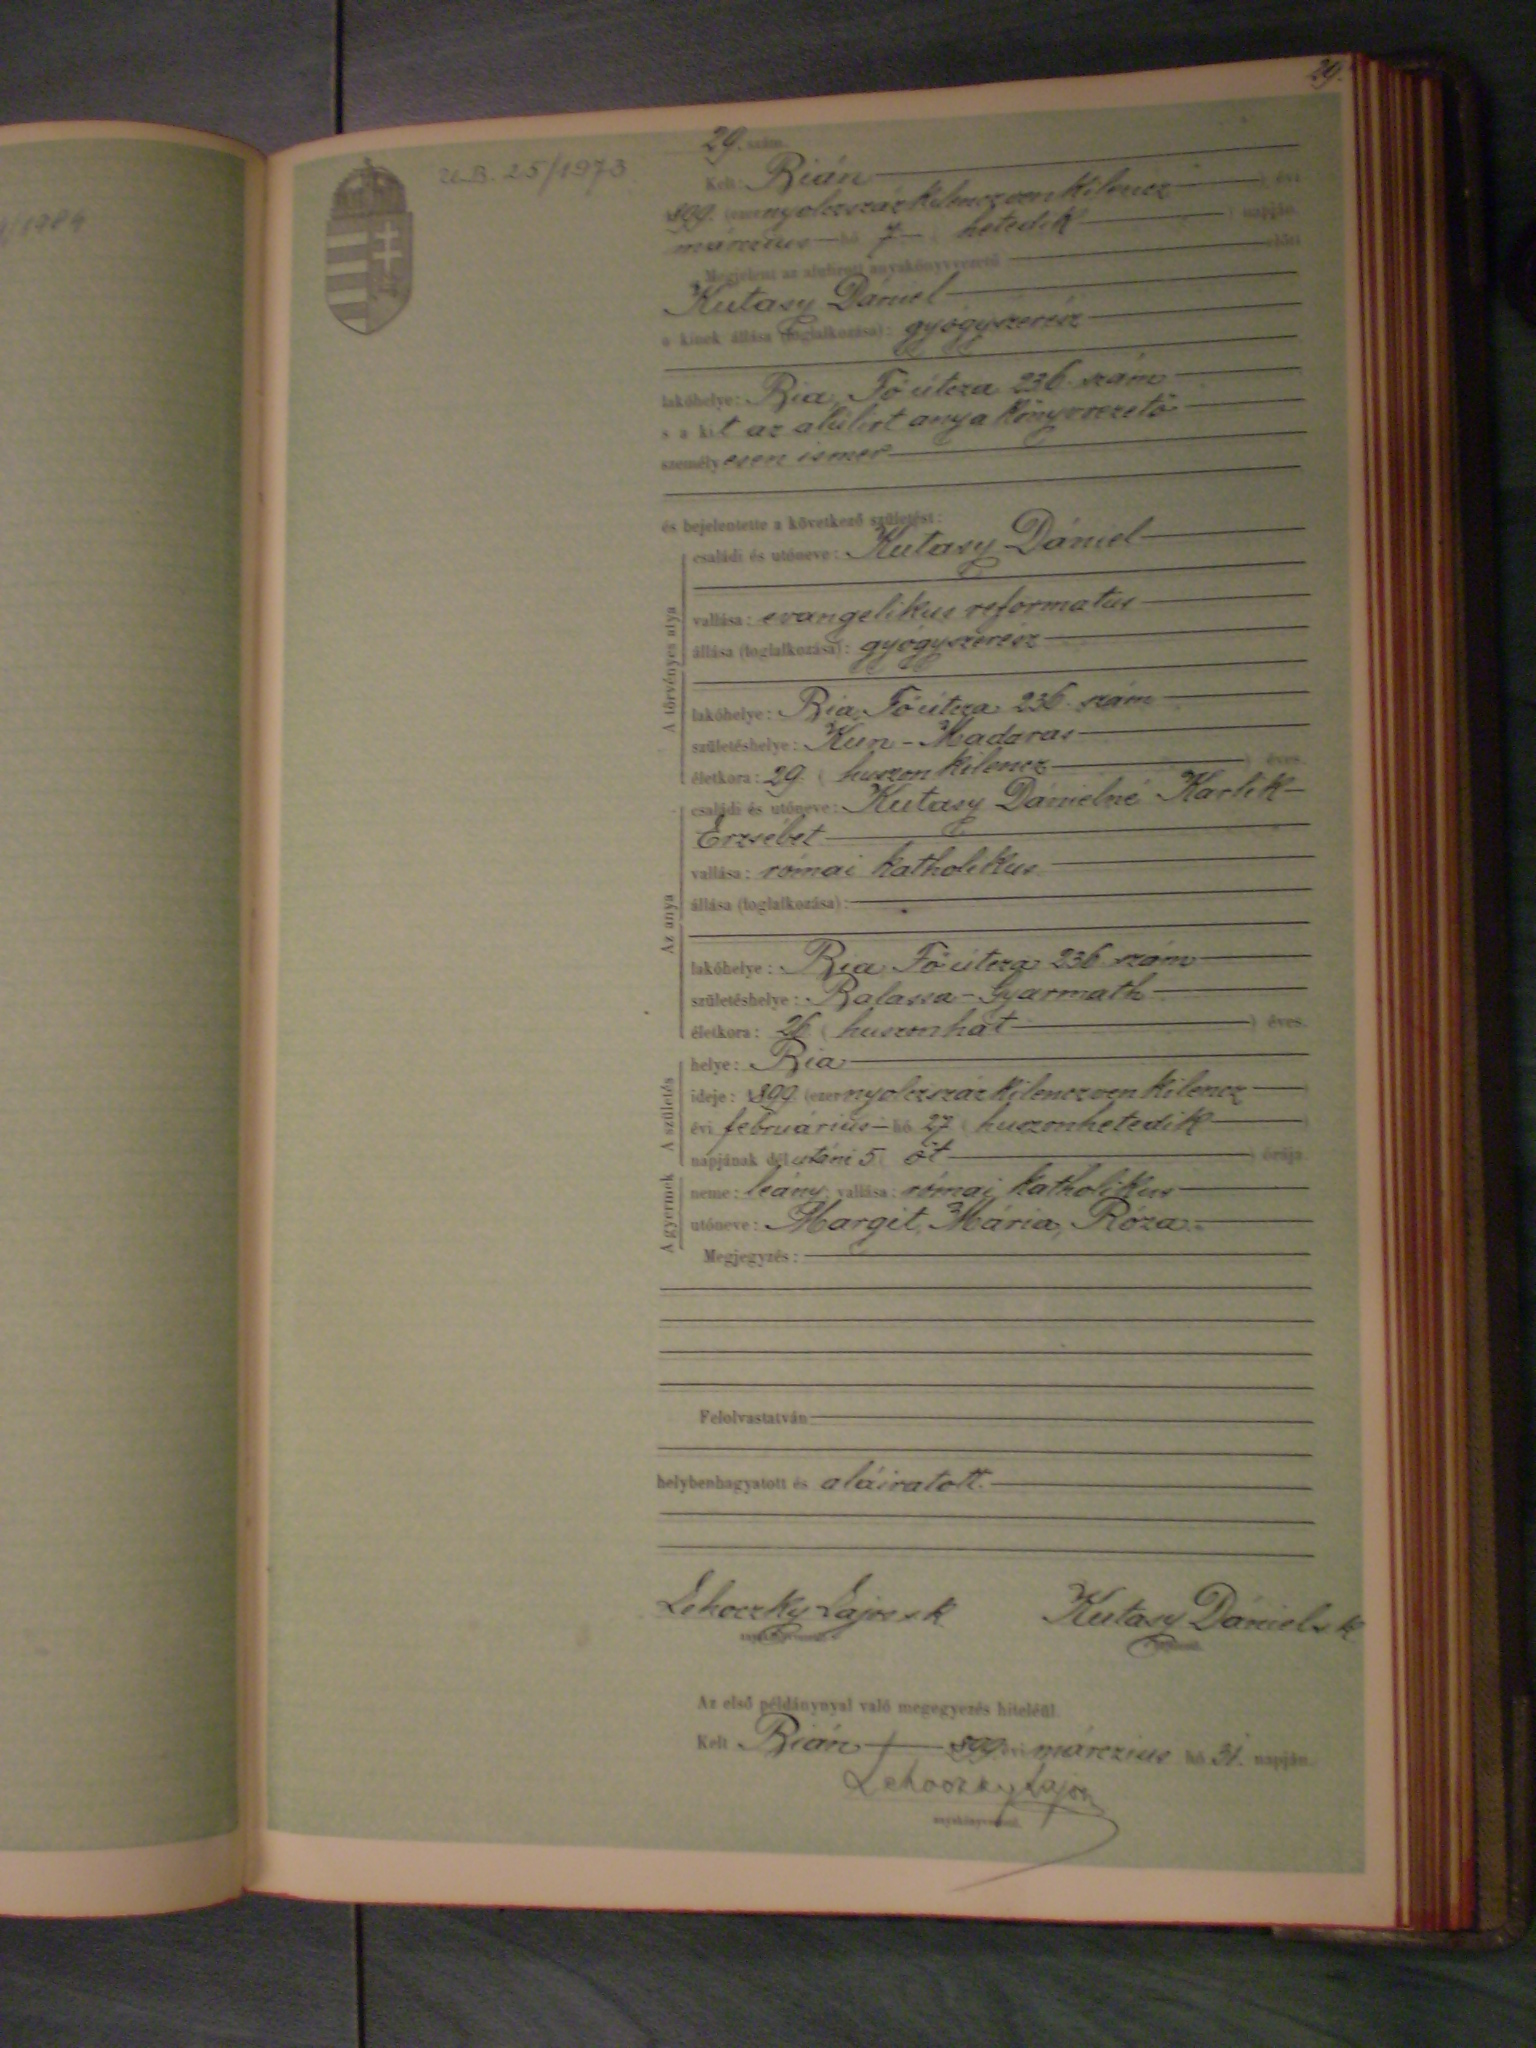 29.
U.B. 25/1973
/1984
29. szám.
Kelt: Bián
1899. (ezernyolczszázkilenczvenkilencz) évi
márczius hó 7 (hetedik) napján.
Megjelent az alulirott anyakönyvvezető előtt
Kutasy Dániel
a kinek állása (foglalkozása): gyógyszerész
lakóhelye: Bia, Fő útcza 236. szám
s a kit az alúlirt anyakönyvvezető
személyesen ismer
és bejelentette a következő születést:
A törvényes atya
családi és utóneve: Kutasy Dániel
vallása: evangelikus reformatus
állása (foglalkozása): gyógyszerész
lakóhelye: Bia, Fő útcza 236. szám
születéshelye: Kun-Madaras
életkora: 29. (huszonkilencz) éves.
Az anya
családi és utóneve: Kutasy Dánielné Karlik
Erzsébet
vallása: római katholikus
állása (foglalkozása):
lakóhelye: Bia, Fő útcza 236 szám
születéshelye: Balassa-Gyarmath
életkora: 26 (huszonhat) éves.
A születés
helye: Bia
ideje: 1899. (ezernyolczszázkilenczvenkilencz)
évi február​ius hó 27 (huszonhetedik)
napjának délutáni 5 (öt) órája.
A gyermek
neme: leány; vallása: római katholikus
utóneve: Margit, Mária, Róza.
Megjegyzés:
Felolvastatván
helybenhagyatott és aláiratott.
Lehoczky Lajos s k
Kutasy Dániel s k
anyakönyvvezető.
Az első példánynyal való megegyezés hiteléül.
Kelt Bián 1899. évi márczius hó 31. napján.
Lehoczky Lajos
anyakönyvvezető.